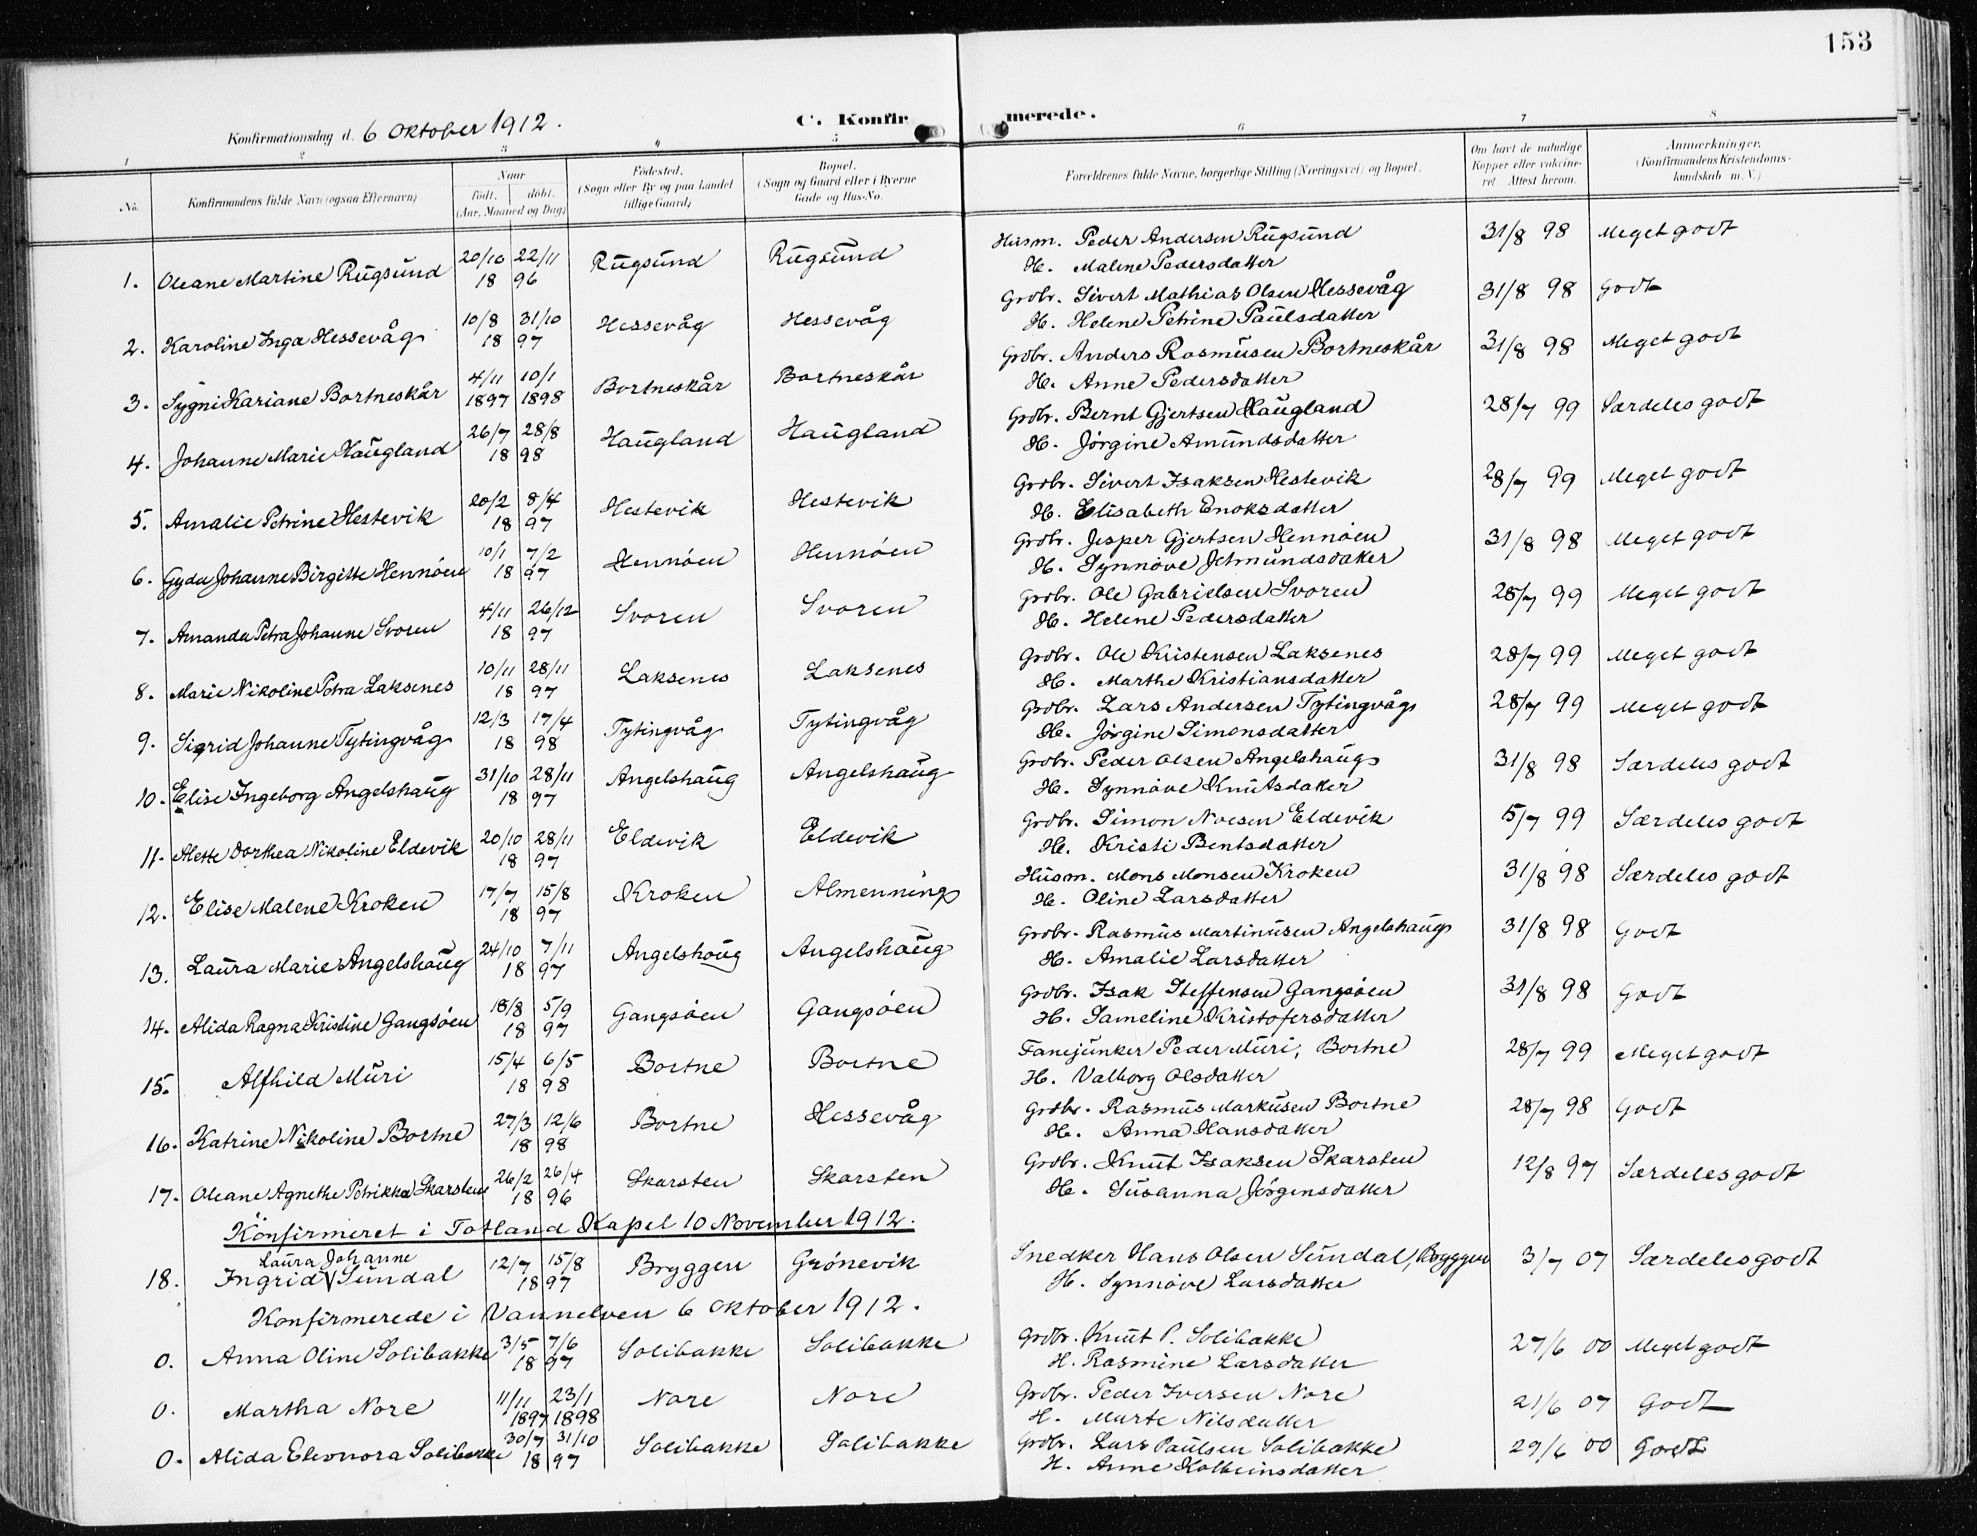 153
Konfirmationsdag d. 6 Oktober 1912.
C. Konfirmerede.
1 2 3 4 5 6 7 8
No. Konfirmandens fulde Navn (ogsaa Efternavn) Naar født. døbt. (Aar, Maaned og Dag) Fødested. (Sogn eller By og paa Landet tillige Gaard) Bopæl. (Sogn og Gaard eller i Byerne Gade og Hus-No. Forældrenes fulde Navne, borgerlige Stilling (Næringsvei) og Bopæl. Om havt de naturlige Kopper eller vaccineret. Attest herom. Anmærkninger. (Konfirmandens Kristendomskundskab m. V.)
1. Oleane Martine Rugsund 20/10 22/11 1896 Rugsund Rugsund Husm. Peder Andersen Rugsund 31/8 98 Meget godt
H. Malene Pedersdatter
2. Karoline Inga Hessevåg 10/8 31/10 1897 Hessevåg Hessevåg Grdbr. Sivert Mathias Olsen Hessevåg 31/8 98 Godt
H. Helene Petrine Paulsdatter
3. Sygni Kariane Bortneskår 4/11 1897 10/1 1898 Bortneskår Bortneskår Grdbr. Anders Rasmusen Bortneskår 31/8 98 Meget godt
H. Anne Pedersdatter
4. Johanne Marie Haugland 26/7 28/8 1898 Haugland Haugland Grdbr. Bernt Gjertsen Haugland 28/7 99 Særdeles godt
H. Jørgine Amundsdatter
5. Amalie Petrine Hestevik 20/2 8/4 1897 Hestevik Hestevik Grdbr. Sivert Isaksen Hestevik 28/7 99 Meget godt
H. Elisabeth Enoksdatter
6. Gyda Johanne Birgitte Hennøen 10/1 7/2 1897 Hennøen Hennøen Grdbr. Jesper Gjertsen Hennøen 31/8 98 Meget godt
H. Synnøve Jetmundsdatter
7. Amanda Petra Johanne Svoren 4/11 26/12 1897 Svoren Svoren Grdbr. Ole Gabrielsen Svoren 28/7 99 Meget godt
H. Helene Pedersdatter
8. Marie Nikoline Petra Laksenes 10/11 28/11 1897 Laksenes Laksenes Grdbr. Ole Kristensen Laksenes 28/7 99 Meget godt
H. Marthe Kristiansdatter
9. Sigrid Johanne Tytingvåg 12/3 17/4 1898 Tytingvåg Tytingvåg Grdbr. Lars Andersen Tytingvåg 28/7 99 Meget godt
H. Jørgine Simonsdatter
10. Elise Ingeborg Angelshaug 31/10 28/11 1897 Angelshaug Angelshaug Grdbr. Peder Olsen Angelshaug 31/8 98 Særdeles godt
H. Synnøve Knutsdatter
11. Alette Dorthea Nikoline Eldevik 20/10 28/11 1897 Eldevik Eldevik Grdbr. Simon Noesen Eldevik 5/7 99 Særdeles godt
H. Kristi Bentsdatter
12. Elise Malene Kroken 17/7 15/8 1897 Kroken Almenning Husm. Mons Monsen Kroken 31/8 98 Særdeles godt
H. Oline Larsdatter
13. Laura Marie Angelshaug 24/10 7/11 1897 Angelshoug Angelshaug Grdbr. Rasmus Martinusen Angelshaug 31/8 98 Godt
H. Amalie Larsdatter
14. Alida Ragna Kristine Gangsøen 18/8 5/9 1897 Gangsøen Gangsøen Grdbr. Isak Steffensen Gangsøen 31/8 98 Godt
H. Sameline Kristofersdatter
15. Alfhild Muri 15/4 6/5 1898 Bortne Bortne Fanejunker Peder Muri, Bortne 28/7 99 Meget godt
H. Valborg Olsdatter
16. Katrine Nikoline Bortne 27/3 12/6 1898 Bortne Hessevåg Grdbr. Rasmus Markusen Bortne 28/7 98 Godt
H. Anna Hansdatter
17. Oleane Agnethe Petrikka Skarsten 26/2 26/4 1896 Skarsten Skarsten Grdbr. Knut Isaksen Skarsten 12/8 97 Særdeles godt
H. Susanna Jørgensdatter
Konfirmeret i Totland Kapel 10 November 1912.
Laura Johanne
18. Ingrid V Sundal 12/7 15/8 1897 Bryggen Grønevik Snedker Hans Olsen Sundal, Bryggen 3/7 07 Særdeles godt
H. Synnøve Larsdatter
Konfirmerede i Vannelven 6 Oktober 1912.
0. Anna Oline Solibakke 3/5 7/6 1897 Solibakke Solibakke Grdbr. Knut P. Solibakke 27/6 00 Meget godt
H. Rasmine Larsdatter
0. Martha Nore 11/11 1897 23/1 1898 Nore Nore Grdbr. Peder Iversen Nore 21/6 07 Godt
H. Marte Nilsdatter
0. Alida Eleonora Solibakke 30/7 31/10 1897 Solibakke Solibakke Grdbr. Lars Paulsen Solibakke 29/6 00 Godt
H. Anne Kolbeinsdatter